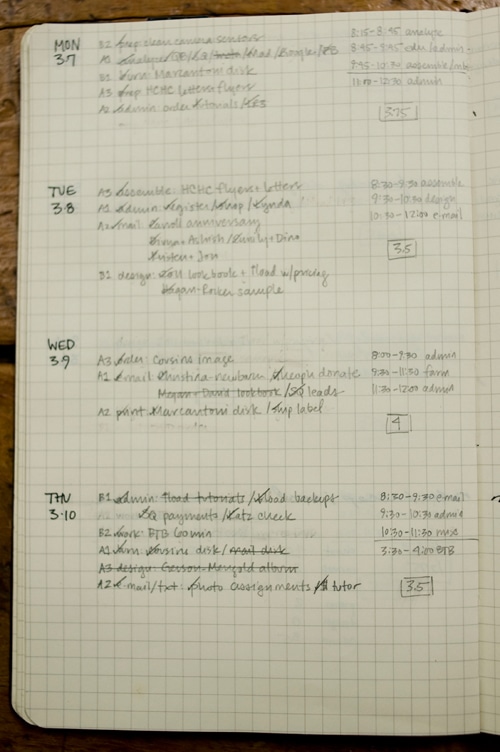 MON
3.7
B2 prep clean camera sensors
B1 burn: Marcantoni disk
A3 prep HCHC letters flyers
A2 admin: order tutorials /
8:15-8:45 analyte
8:45-9:45 edu/admin
9:45-10:30 assemble/
11:00-12:30 admin
3.75
TUE
3.8
A3 assemble: HCHC flyers + letters
A1 admin: register/snap/lynda
A2 email: Caroll anniversary
+ Ashish / Emily + Dino
Kristen + Jon
B1 design: lookbook + load w/pricing
Hagan-Rocker sample
8:30-9:30 assemble
9:30-10:30 design
10:30-12:00 e-mail
3.5
WED
3.9
A3 order: cousins image
A1 email: Christina-newborn / donate
Megan + David lookbook / SQ leads
A2 print Marcantoni disk / ship label
8:00-9:30 admin
9:30-11:30 farm
11:30-12:00 admin
4
THU
3.10
B1 admin: load tutorials / load backups
SQ payments / Katz check
B2 work: BTB 60 min
A1 burn: cousins disk / mail disk
A3 design: Marigold album
A2 e-mail/txt: photo assignments / tutor
8:30-9:30 email
9:30-10:30 admin
10:30-11:30 misc
3:30-4:00 BTB
3.5